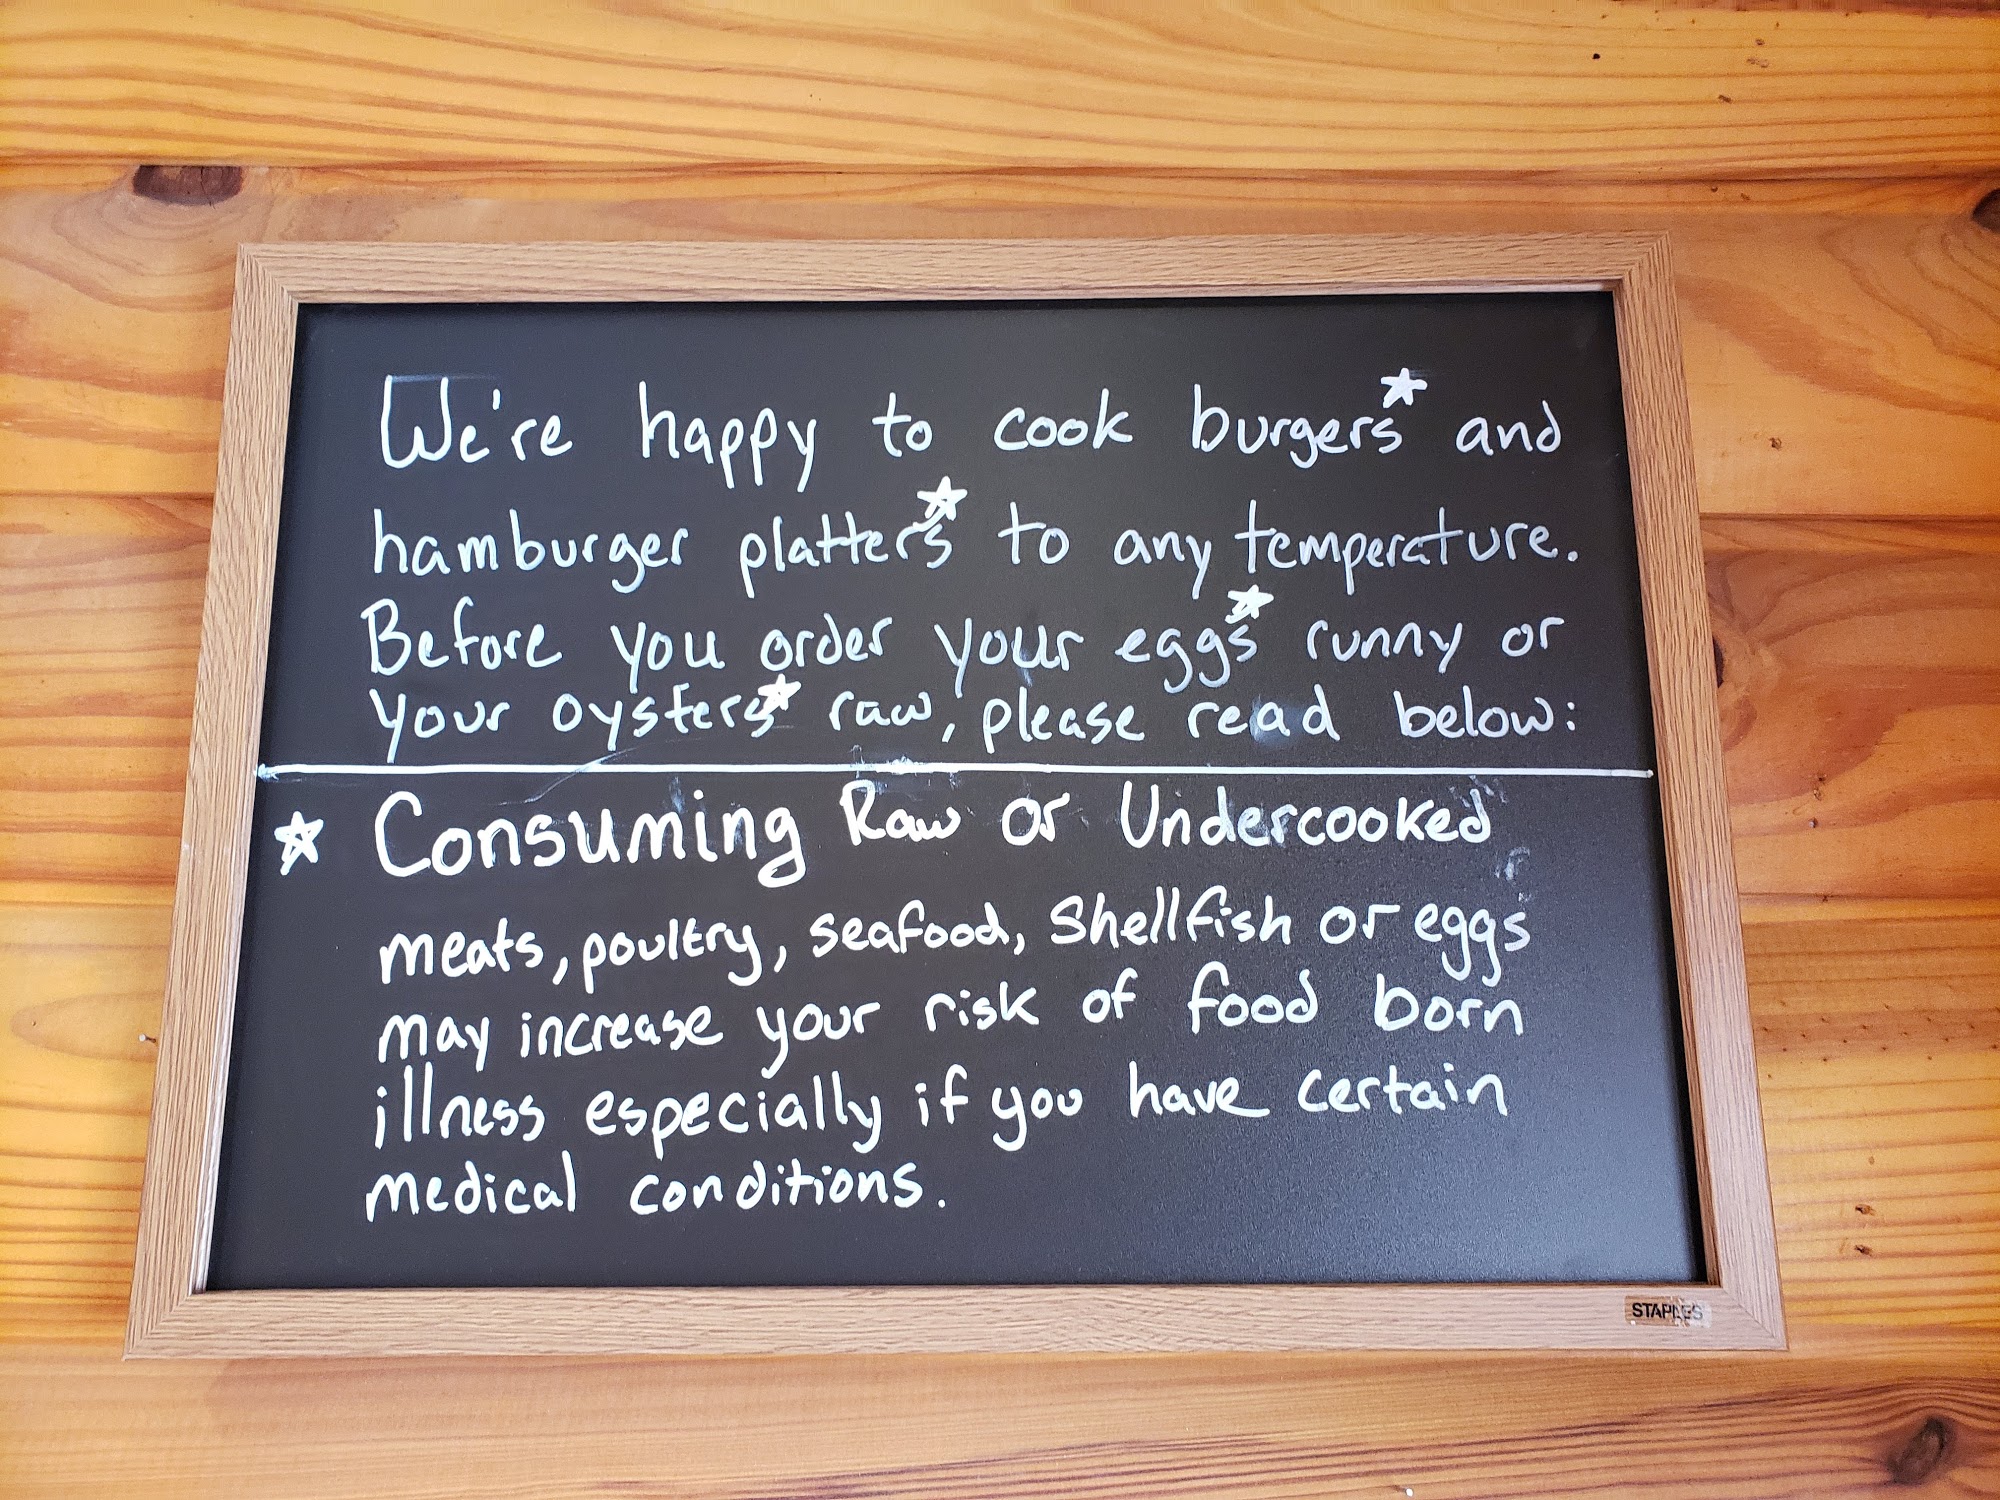 We're happy to cook burgers☆ and
hamburger platters☆ to any temperature.
Before you order your eggs☆ runny or
your oysters☆ raw, please read below:
☆ Consuming Raw or Undercooked
meats, poultry, seafood, Shellfish or eggs
may increase your risk of food born
illness especially if you have certain
medical conditions.
STAPLES